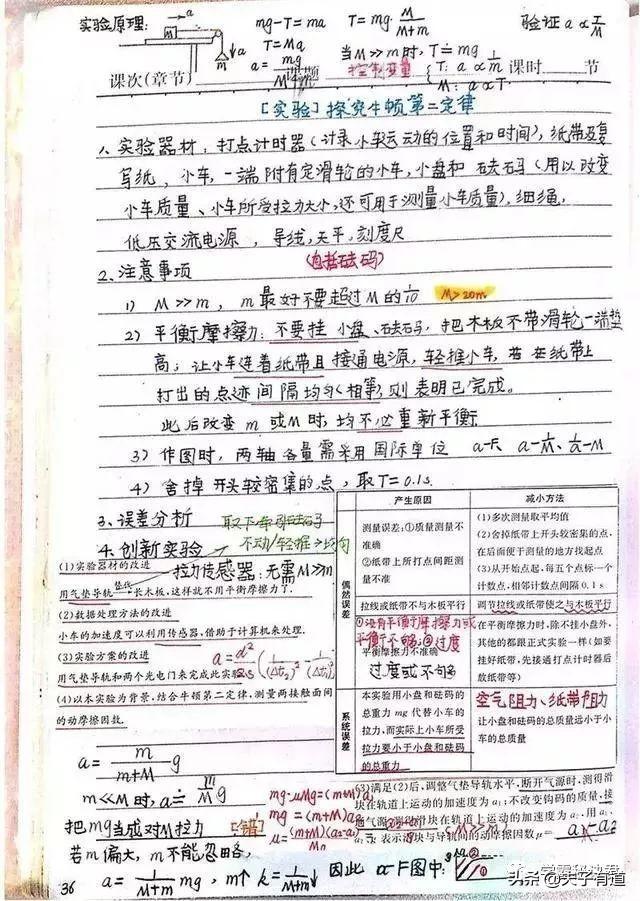 实验原理:
a
M
m
a
mg-T=ma T=mg·M/(M+m) 验证 a∝F/M
T=Ma 当M≫m时,T≐mg
a=mg/(M+m) 控制变量 { T: a∝1/m
M: a∝T.
课次(章节) 课题 课时 节
[实验] 探究牛顿第二定律
1、实验器材:打点计时器(计录小车运动的位置和时间),纸带及复
写纸,小车,一端附有定滑轮的小车,小盘和砝码(用以改变
小车质量、小车所受拉力大小,还可用于测量小车质量),细绳,
低压交流电源,导线,天平,刻度尺
2、注意事项 (包括砝码)
1) M≫m, m最好不要超过M的1/10 M>20m
2) 平衡摩擦力:不要挂小盘、砝码,把木板不带滑轮一端垫
高;让小车连着纸带且接通电源,轻推小车,若在纸带上
打出的点迹间隔均匀(相等),则表明已完成。
此后改变m或M时,均不必重新平衡
3) 作图时,两轴各量需采用国际单位 a-F、a-1/M、1/a-M
4) 舍掉开头较密集的点,取T=0.1s.
3、误差分析 取下车 砝码
不动/轻推→均匀
4、创新实验
(1)实验器材的改进 拉力传感器:无需M≫m
用气垫导轨 替代 长木板,这样就不用平衡摩擦力了.
(2)数据处理方法的改进
小车的加速度可以利用传感器,借助于计算机来处理.
(3)实验方案的改进
用气垫导轨和两个光电门来完成此实验.
(4)以本实验为背景,结合牛顿第二定律,测量两接触面间
的动摩擦因数.
产生原因 减小方法
偶然误差
测量误差:①质量测量不
准确
②纸带上所打点间距测
量不准
(1)多次测量取平均值
(2)舍掉纸带上开头较密集的点,
在后面便于测量的地方找起点
(3)从开始点起,每五个点标一个
计数点,相邻计数点间隔0.1 s
拉线或纸带不与木板平行
调节拉线或纸带使之与木板平行
①没有平衡摩擦力或
平衡不够;②过度
平衡摩擦力不准确
过度或不够
在平衡摩擦力时,除不挂小盘外,
其他的都跟正式实验一样(如要
挂好纸带,先接通打点计时器后
放纸带等)
系统误差
本实验用小盘和砝码的
总重力 mg 代替小车的
拉力,而实际上小车所受
拉力要小于小盘和砝码
的总重力
空气阻力、纸带阻力
让小盘和砝码的总质量远小于小
车的总质量
a=m/(m+M) g
m≪M时,a≐m/M g
把mg当成对M拉力 [错]
若m偏大,m不能忽略,
a=1/(M+m) mg, m↑ k=1/(M+m)↓ 因此 a-F图中:
mg-μMg=(m+M)a₂
mg=(m+M)a₁
(3)满足(2)后,调整气垫导轨水平,断开气源时,测得滑
块在轨道上运动的加速度为 a₂;不改变钩码的质量,接
通气源,测得滑块在轨道上运动的加速度为 a₁,用 a₁、
a₂ 表示滑块与导轨间的动摩擦因数 μ=
36
头条 @夫子有道